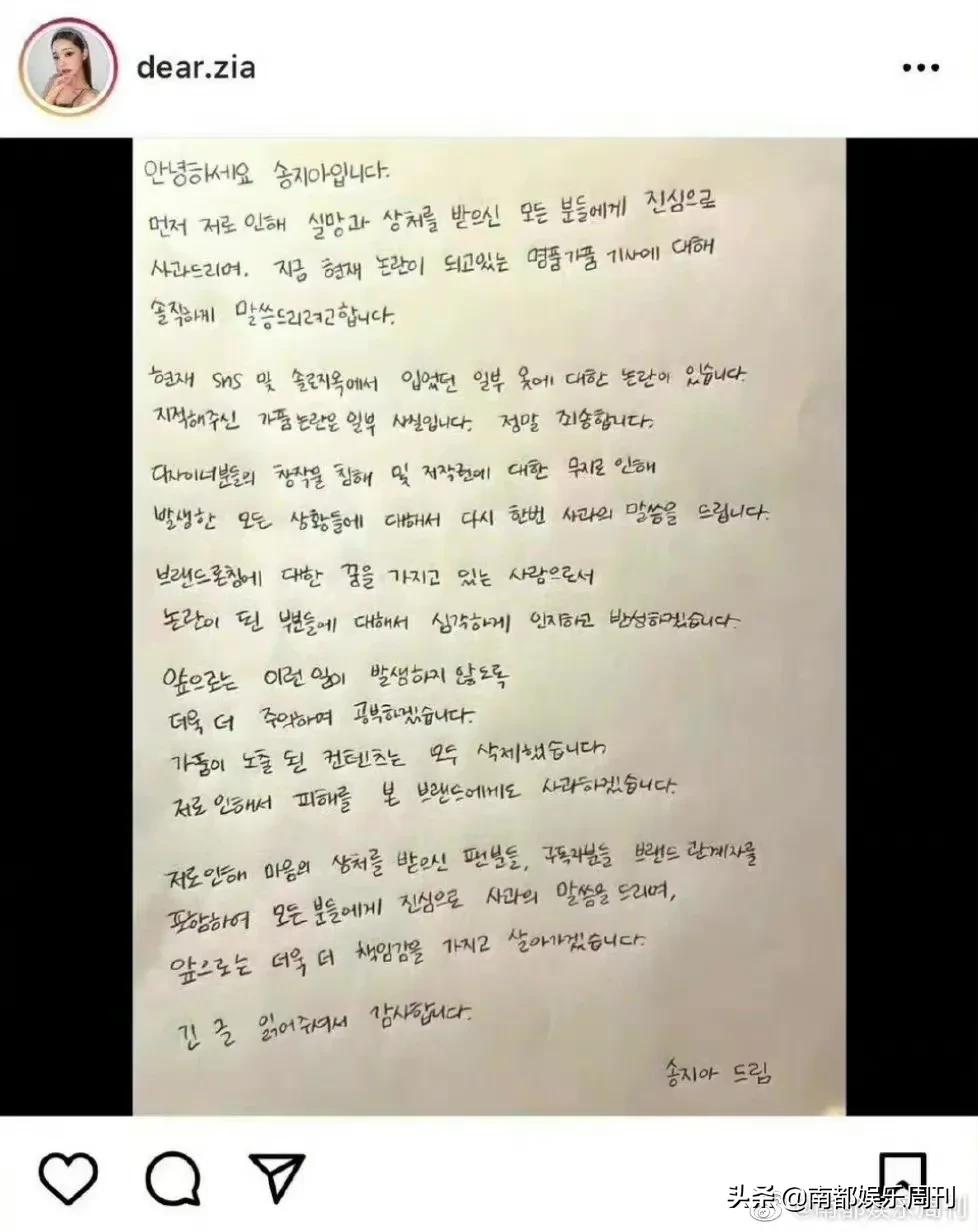 dear.zia
안녕하세요 송지아입니다.
먼저 저로 인해 실망과 상처를 받으신 모든 분들에게 진심으로
사과드리며. 지금 현재 논란이 되고있는 명품가품 기사에 대해
솔직하게 말씀드리려고합니다.
현재 SNS 및 솔로지옥에서 입었던 일부 옷에 대한 논란이 있습니다.
지적해주신 가품논란은 일부 사실입니다. 정말 죄송합니다.
디자이너분들의 창작물 침해 및 저작권에 대한 무지로 인해
발생한 모든 상황들에 대해서 다시 한번 사과의 말씀을 드립니다.
브랜드론칭에 대한 꿈을 가지고 있는 사람으로서
논란이 된 부분들에 대해서 심각하게 인지하고 반성하겠습니다.
앞으로는 이런 일이 발생하지 않도록
더욱 더 주의하며 공부하겠습니다.
가품이 노출 된 컨텐츠는 모두 삭제했습니다.
저로 인해서 피해를 본 브랜드에게도 사과하겠습니다.
저로인해 마음의 상처를 받으신 팬분들, 구독자분들 브랜드 관계자를
포함하여 모든분들에게 진심으로 사과의 말씀을 드리며,
앞으로는 더욱 더 책임감을 가지고 살아가겠습니다.
긴 글 읽어주셔서 감사합니다.
송지아 드림
头条 @南都娱乐周刊
@南都娱乐周刊